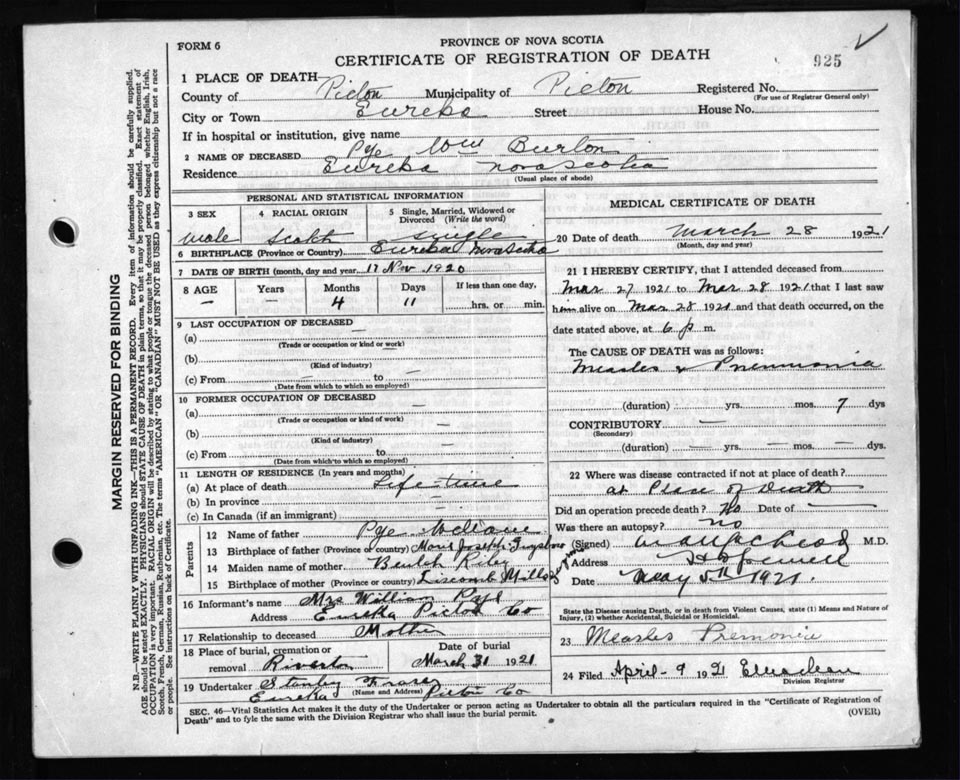 FORM 6
PROVINCE OF NOVA SCOTIA
CERTIFICATE OF REGISTRATION OF DEATH
925
1 PLACE OF DEATH
County of Pictou Municipality of Pictou Registered No.
(For use of Registrar General only)
City or Town Eureka Street House No.
If in hospital or institution, give name
2 NAME OF DECEASED Pye Wm Burton
Residence Eureka Nova Scotia
(Usual place of abode)
PERSONAL AND STATISTICAL INFORMATION
3 SEX 4 RACIAL ORIGIN 5 Single, Married, Widowed or Divorced (Write the word)
Male Scotch Single
6 BIRTHPLACE (Province or Country) Eureka Nova Scotia
7 DATE OF BIRTH (month, day and year 17 Nov 1920
8 AGE Years Months Days If less than one day,
— — 4 11 hrs. or min.
9 LAST OCCUPATION OF DECEASED
(a) —
(Trade or occupation or kind or work)
(b) —
(Kind of industry)
(c) From — to —
(Date from which to which so employed)
10 FORMER OCCUPATION OF DECEASED
(a) —
(Trade or occupation or kind of work)
(b) —
(Kind of industry)
(c) From — to —
(Date from which to which so employed)
11 LENGTH OF RESIDENCE (In years and months)
(a) At place of death Life-time
(b) In province —
(c) In Canada (if an immigrant) —
Parents
12 Name of father Pye William
13 Birthplace of father (Province or country) Joseph
14 Maiden name of mother Beulah Riley
15 Birthplace of mother (Province or country) Liscomb Mills
16 Informant's name Mrs William Pye
Address Eureka Pictou Co
17 Relationship to deceased Mother
18 Place of burial, cremation or removal Riverton
Date of burial
March 31 1921
19 Undertaker Stanley Fraser
(Name and Address)
Eureka Pictou Co
MEDICAL CERTIFICATE OF DEATH
20 Date of death March 28 1921
(Month, day and year)
21 I HEREBY CERTIFY, that I attended deceased from
Mar 27 1921 to Mar 28 1921 that I last saw
him alive on Mar 28 1921 and that death occurred, on the
date stated above, at 6 p m.
The CAUSE OF DEATH was as follows:
Measles & Pneumonia
(duration) yrs. mos. 7 dys
CONTRIBUTORY —
(Secondary)
(duration) — yrs. — mos. — dys.
22 Where was disease contracted if not at place of death?
at Place of Death
Did an operation precede death? No Date of —
Was there an autopsy? no
(Signed) M.D.
Address Hopewell
Date May 5th 1921.
State the Disease causing Death, or in death from Violent Causes, state (1) Means and Nature of
Injury, (2) whether Accidental, Suicidal or Homicidal.
23 Measles Premonia
24 Filed April - 9 1921
Division Registrar
SEC. 46—Vital Statistics Act makes it the duty of the Undertaker or person acting as Undertaker to obtain all the particulars required in the "Certificate of Registration of
Death" and to fyle the same with the Division Registrar who shall issue the burial permit.
(OVER)
MARGIN RESERVED FOR BINDING
N.B.—WRITE PLAINLY WITH UNFADING INK—THIS IS A PERMANENT RECORD. Every item of information should be carefully supplied.
AGE should be stated EXACTLY. PHYSICIANS should STATE CAUSE OF DEATH in plain terms, so that it may be properly classified. Exact statement of
OCCUPATION is very important. RACIAL ORIGIN will be described by stating to what people or tongue the deceased person belonged whether English, Irish,
Scotch, French, German, Russian, Ruthenian, etc. The terms "AMERICAN" OR "CANADIAN" MUST NOT BE USED as they express citizenship but not a race
or people. See instructions on back of Certificate.